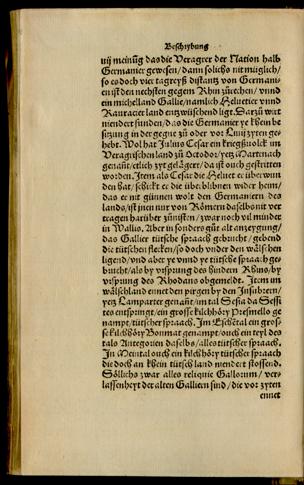 Beschrybung
vij meinũg das die Veragrer der Nation halb
Germanier gewesen / dann solichs nit müglich /
so es doch vier tagreyß distantz von Germani-
en ist den nechsten gegem Rhin zůrechen / vnnd
ein michelland Gallie / namlich Heluetier vnnd
Rauracier land entzwüschend ligt. Darzů wirt
niendert funden / das die Germanier ye khein be
sitzung in der gegne zů oder vor Iunij zyten ge-
hebt. Wol hat Julius Cesar ein kriegßuolck im
Veragrischen land zů Octodor / yetz Martenach
genant / etlich zyt gelägert / da ist ouch gestritten
worden. Item als Cesar die Heluet er überwun
den hat / schickt er die überblibnen wider heim /
das er nit günnen wolt den Germaniern des
lands / ist jnen nur von Römern daselbs mit ver
tragen harüber zůnisten / zwar noch vil minder
in Wallis. Aber in sonders gůt alt anzeygung /
das Gallier tütsche spraach gebrucht / gebend
die tütschen flecken / so doch vnder den wälschen
ligend / vnd aber ye vnnd ye tütsche spraach ge-
brucht / als by vrsprung des hindern Rhins / by
vrsprung des Rhodans obgemelt. Item im
wälschland ennet den pirgen by den Insubrern /
yetz Lamparter genant / im tal Sesia da Sessi
tes entspringt / ein grosse kilchhöry Presmello ge
nampt / tütscher spraach. Im Eschetal ein gros-
se kilchhöry Bonmat genampt / ouch ein teyl des
tals Antegorien daselbs / alles tütscher spraach.
In Meintal ouch ein kilchhöry tütscher spraach
die doch an khein tütsch land niendert stossend.
Söllichs zwar alles reliquie Gallorum / ver-
lassenheyt der alten Galliern sind / die vor zyten
ennet